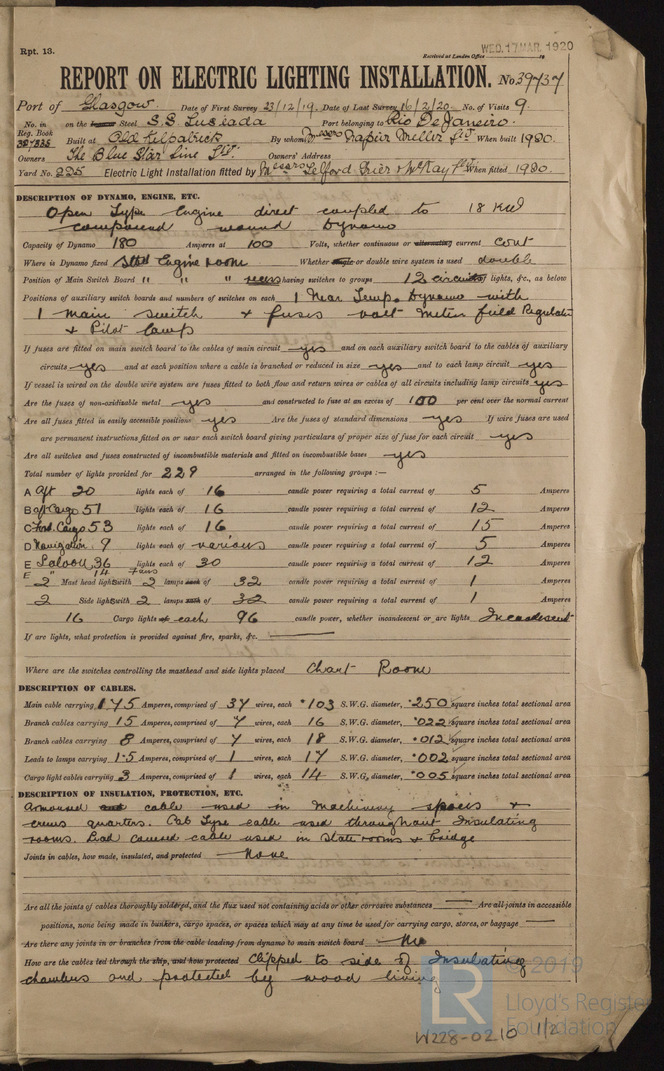 Rpt. 13.
Received at London Office WED. 17 MAR. 1920 19
REPORT ON ELECTRIC LIGHTING INSTALLATION. No 39737
Port of Glasgow. Date of First Survey 23/12/19. Date of Last Survey 16/2/20. No. of Visits 9.
No. in Reg. Book on the Iron or Steel S.S Lusiada Port belonging to Rio De Janeiro.
Built at Old Kilpatrick By whom Messrs Napier Miller Ltd When built 1920.
Owners The Blue Star Line Ltd. Owners' Address
Yard No. 225 Electric Light Installation fitted by Messrs Telford, Grier & McKay Ltd When fitted 1920.
DESCRIPTION OF DYNAMO, ENGINE, ETC.
Open Type Engine direct coupled to 18 KW
compound wound Dynamo
Capacity of Dynamo 180 Amperes at 100 Volts, whether continuous or alternating current Cont
Where is Dynamo fixed Engine room Whether single or double wire system is used double
Position of Main Switch Board " " " having switches to groups 12 circuits of lights, &c., as below
Positions of auxiliary switch boards and numbers of switches on each 1 Near Dynamo with
1 main switch & fuses volt meter field Regulator
& Pilot lamp
If fuses are fitted on main switch board to the cables of main circuit yes and on each auxiliary switch board to the cables of auxiliary
circuits yes and at each position where a cable is branched or reduced in size yes and to each lamp circuit yes
If vessel is wired on the double wire system are fuses fitted to both flow and return wires or cables of all circuits including lamp circuits yes
Are the fuses of non-oxidizable metal yes and constructed to fuse at an excess of 100 per cent over the normal current
Are all fuses fitted in easily accessible positions yes Are the fuses of standard dimensions yes If wire fuses are used
are permanent instructions fitted on or near each switch board giving particulars of proper size of fuse for each circuit yes
Are all switches and fuses constructed of incombustible materials and fitted on incombustible bases yes
Total number of lights provided for 229 arranged in the following groups :—
A Aft 20 lights each of 16 candle power requiring a total current of 5 Amperes
B Aft Cargo 51 lights each of 16 candle power requiring a total current of 12 Amperes
C Ford. Cargo 53 lights each of 16 candle power requiring a total current of 15 Amperes
D Navigation 9 lights each of various candle power requiring a total current of 5 Amperes
E Saloon 36 lights each of 30 candle power requiring a total current of 12 Amperes
F " 14 Fans
2 Mast head lights with 2 lamps each of 32 candle power requiring a total current of 1 Amperes
2 Side lights with 2 lamps each of 32 candle power requiring a total current of 1 Amperes
16 Cargo lights of each 96 candle power, whether incandescent or arc lights Incandescent
If arc lights, what protection is provided against fire, sparks, &c.
Where are the switches controlling the masthead and side lights placed Chart Room
DESCRIPTION OF CABLES.
Main cable carrying 175 Amperes, comprised of 37 wires, each .103 S.W.G. diameter, .250 square inches total sectional area
Branch cables carrying 15 Amperes, comprised of 7 wires, each 16 S.W.G. diameter, .022 square inches total sectional area
Branch cables carrying 8 Amperes, comprised of 7 wires, each 18 S.W.G. diameter, .012 square inches total sectional area
Leads to lamps carrying 1.5 Amperes, comprised of 1 wires, each 17 S.W.G. diameter, .002 square inches total sectional area
Cargo light cables carrying 3 Amperes, comprised of 1 wires, each 14 S.W.G. diameter, .005 square inches total sectional area
DESCRIPTION OF INSULATION, PROTECTION, ETC.
Armoured cable used in Machinery spaces &
crews quarters. Cab Tyre cable used throughout Insulating
rooms. Lead covered cable used in State rooms & bridge
Joints in cables, how made, insulated, and protected None
Are all the joints of cables thoroughly soldered, and the flux used not containing acids or other corrosive substances — Are all joints in accessible
positions, none being made in bunkers, cargo spaces, or spaces which may at any time be used for carrying cargo, stores, or baggage —
Are there any joints in or branches from the cable leading from dynamo to main switch board No
How are the cables led through the ship, and how protected Clipped to side of Insulating
chambers and protected by wood lining
© 2019
LR
Lloyd's Register
Foundation
W228-0210 1/2